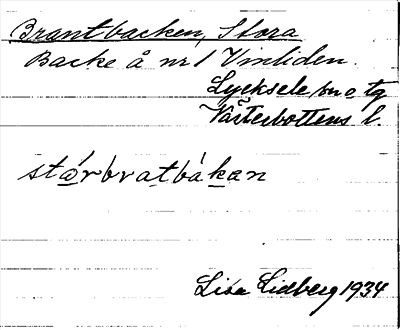 Brantbacken, Stora
Backe å nr 1 Vinliden.
Lycksele sn o tg
Västerbottens l.
stárbratbákan
Lisa Lidberg 1934